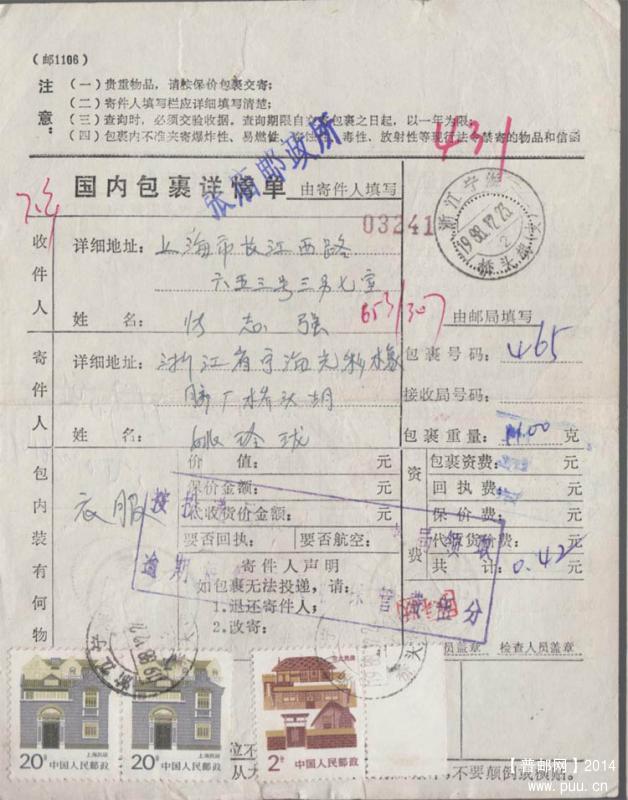 （邮1106）
注意：
（一）贵重物品，请按保价包裹交寄；
（二）寄件人填写栏应详细填写清楚；
（三）查询时，必须交验收据。查询期限自交寄包裹之日起，以一年为限；
（四）包裹内不准夹寄爆炸性、易燃性、腐蚀性、毒性、放射性等现行法令禁寄的物品和信函
431
邮政所
国内包裹详情单
由寄件人填写
03241
浙江宁海
1988.12.23
2
桥头胡
收件人
详细地址：上海市长江西路
六五三号三另七室
653/307
姓名：志强
由邮局填写
寄件人
详细地址：浙江省宁海光彩橡
胶厂桥头胡
姓名：姚玲珑
包裹号码：465
接收局号码：
包裹重量：克
包内装有何物
衣服
价值：元
保价金额：元
代收货价金额：元
要否回执：
要否航空：
资费
包裹资费：元
回执费：元
保价费：元
代收货价费：元
共计：0.42元
逾期
分
寄件人声明
如包裹无法投递，请：
1.退还寄件人；
2.改寄：
员盖章
检查人员盖章
上海民居
20分
中国人民邮政
上海民居
20分
中国人民邮政
民居
2分
中国人民邮政
位不
从左
，不要颠倒或横贴。
【普邮网】2014
www.puu.cn